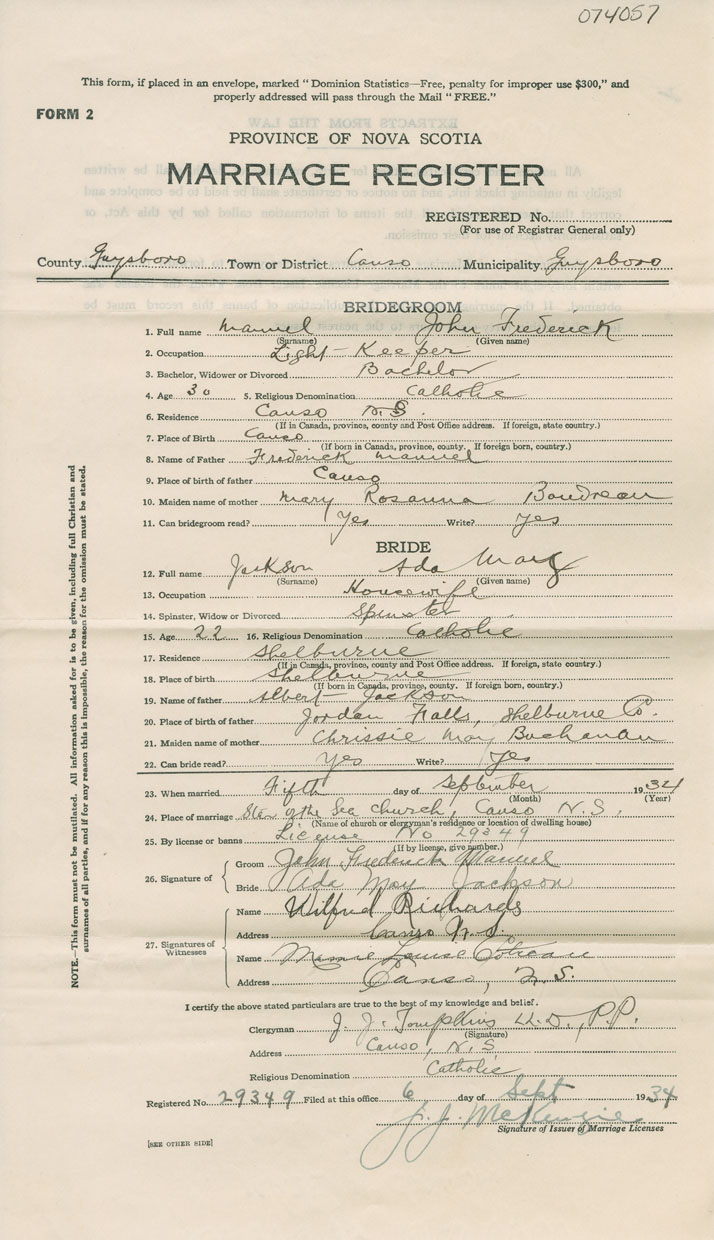 074057
This form, if placed in an envelope, marked "Dominion Statistics—Free, penalty for improper use $300," and
properly addressed will pass through the Mail "FREE."
FORM 2
PROVINCE OF NOVA SCOTIA
MARRIAGE REGISTER
REGISTERED No.
(For use of Registrar General only)
County Guysboro Town or District Canso Municipality Guysboro
BRIDEGROOM
1. Full name Manuel John Frederick
(Surname) (Given name)
2. Occupation Light-Keeper
3. Bachelor, Widower or Divorced Bachelor
4. Age 30 5. Religious Denomination Catholic
6. Residence Canso N.S.
(If in Canada, province, county and Post Office address. If foreign, state country.)
7. Place of Birth Canso
(If born in Canada, province, county. If foreign born, country.)
8. Name of Father Frederick Manuel
9. Place of birth of father Canso
10. Maiden name of mother Mary Rosanna Boudreau
11. Can bridegroom read? Yes Write? yes
BRIDE
12. Full name Jackson Ada May
(Surname) (Given name)
13. Occupation Housewife
14. Spinster, Widow or Divorced Spinster
15. Age 22 16. Religious Denomination Catholic
17. Residence Shelburne
(If in Canada, province, county and Post Office address. If foreign, state country.)
18. Place of birth Shelburne
(If born in Canada, province, county. If foreign born, country.)
19. Name of father Albert Jackson
20. Place of birth of father Jordan Falls, Shelburne Co.
21. Maiden name of mother Chrissie May Buchanan
22. Can bride read? Yes Write? Yes
23. When married Fifth day of September 1934
(Month) (Year)
24. Place of marriage Star of the Sea church, Canso N.S.
(Name of church or clergyman's residence or location of dwelling house)
25. By license or banns License No 29349
(If by license, give number.)
26. Signature of
Groom John Frederick Manuel
Bride Ada May Jackson
27. Signatures of Witnesses
Name Wilfred Richards
Address Canso N.S.
Name Louise
Address Canso, N.S.
I certify the above stated particulars are true to the best of my knowledge and belief.
Clergyman J. J. Tompkins LL.D., P.P.
(Signature)
Address Canso, N.S
Religious Denomination Catholic
Registered No. 29349 Filed at this office 6 day of Sept 1934
J. J. McKenzie
Signature of Issuer of Marriage Licenses
[SEE OTHER SIDE]
NOTE.—This form must not be mutilated. All information asked for is to be given, including full Christian and
surnames of all parties, and if for any reason this is impossible, the reason for the omission must be stated.